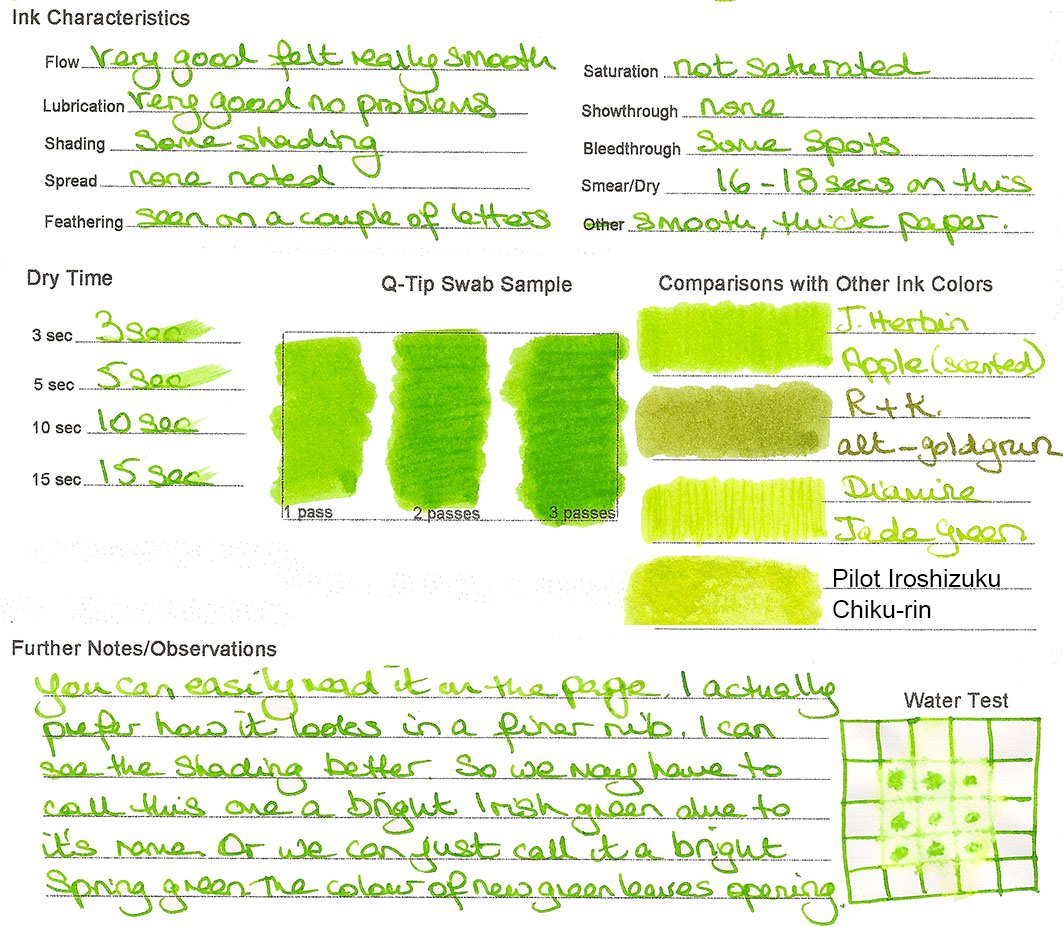 Ink Characteristics
Flow very good felt really smooth
Lubrication very good no problems
Shading some shading
Spread none noted
Feathering seen on a couple of letters
Saturation not saturated
Showthrough none
Bleedthrough some spots
Smear/Dry 16-18 secs on this
Other smooth, thick paper.
Dry Time
3 sec 3 sec
5 sec 5 sec
10 sec 10 sec
15 sec 15 sec
Q-Tip Swab Sample
1 pass 2 passes 3 passes
Comparisons with Other Ink Colors
J. Herbin
Apple (scented)
R + K.
alt-goldgrun
Diamine
Jade Green
Pilot Iroshizuku
Chiku-rin
Further Notes/Observations
You can easily read it on the page. I actually
prefer how it looks in a finer nib. I can
see the shading better. So we may have to
call this one a bright Irish green due to
it's name. Or we can just call it a bright
Spring green-the colour of new green leaves opening.
Water Test